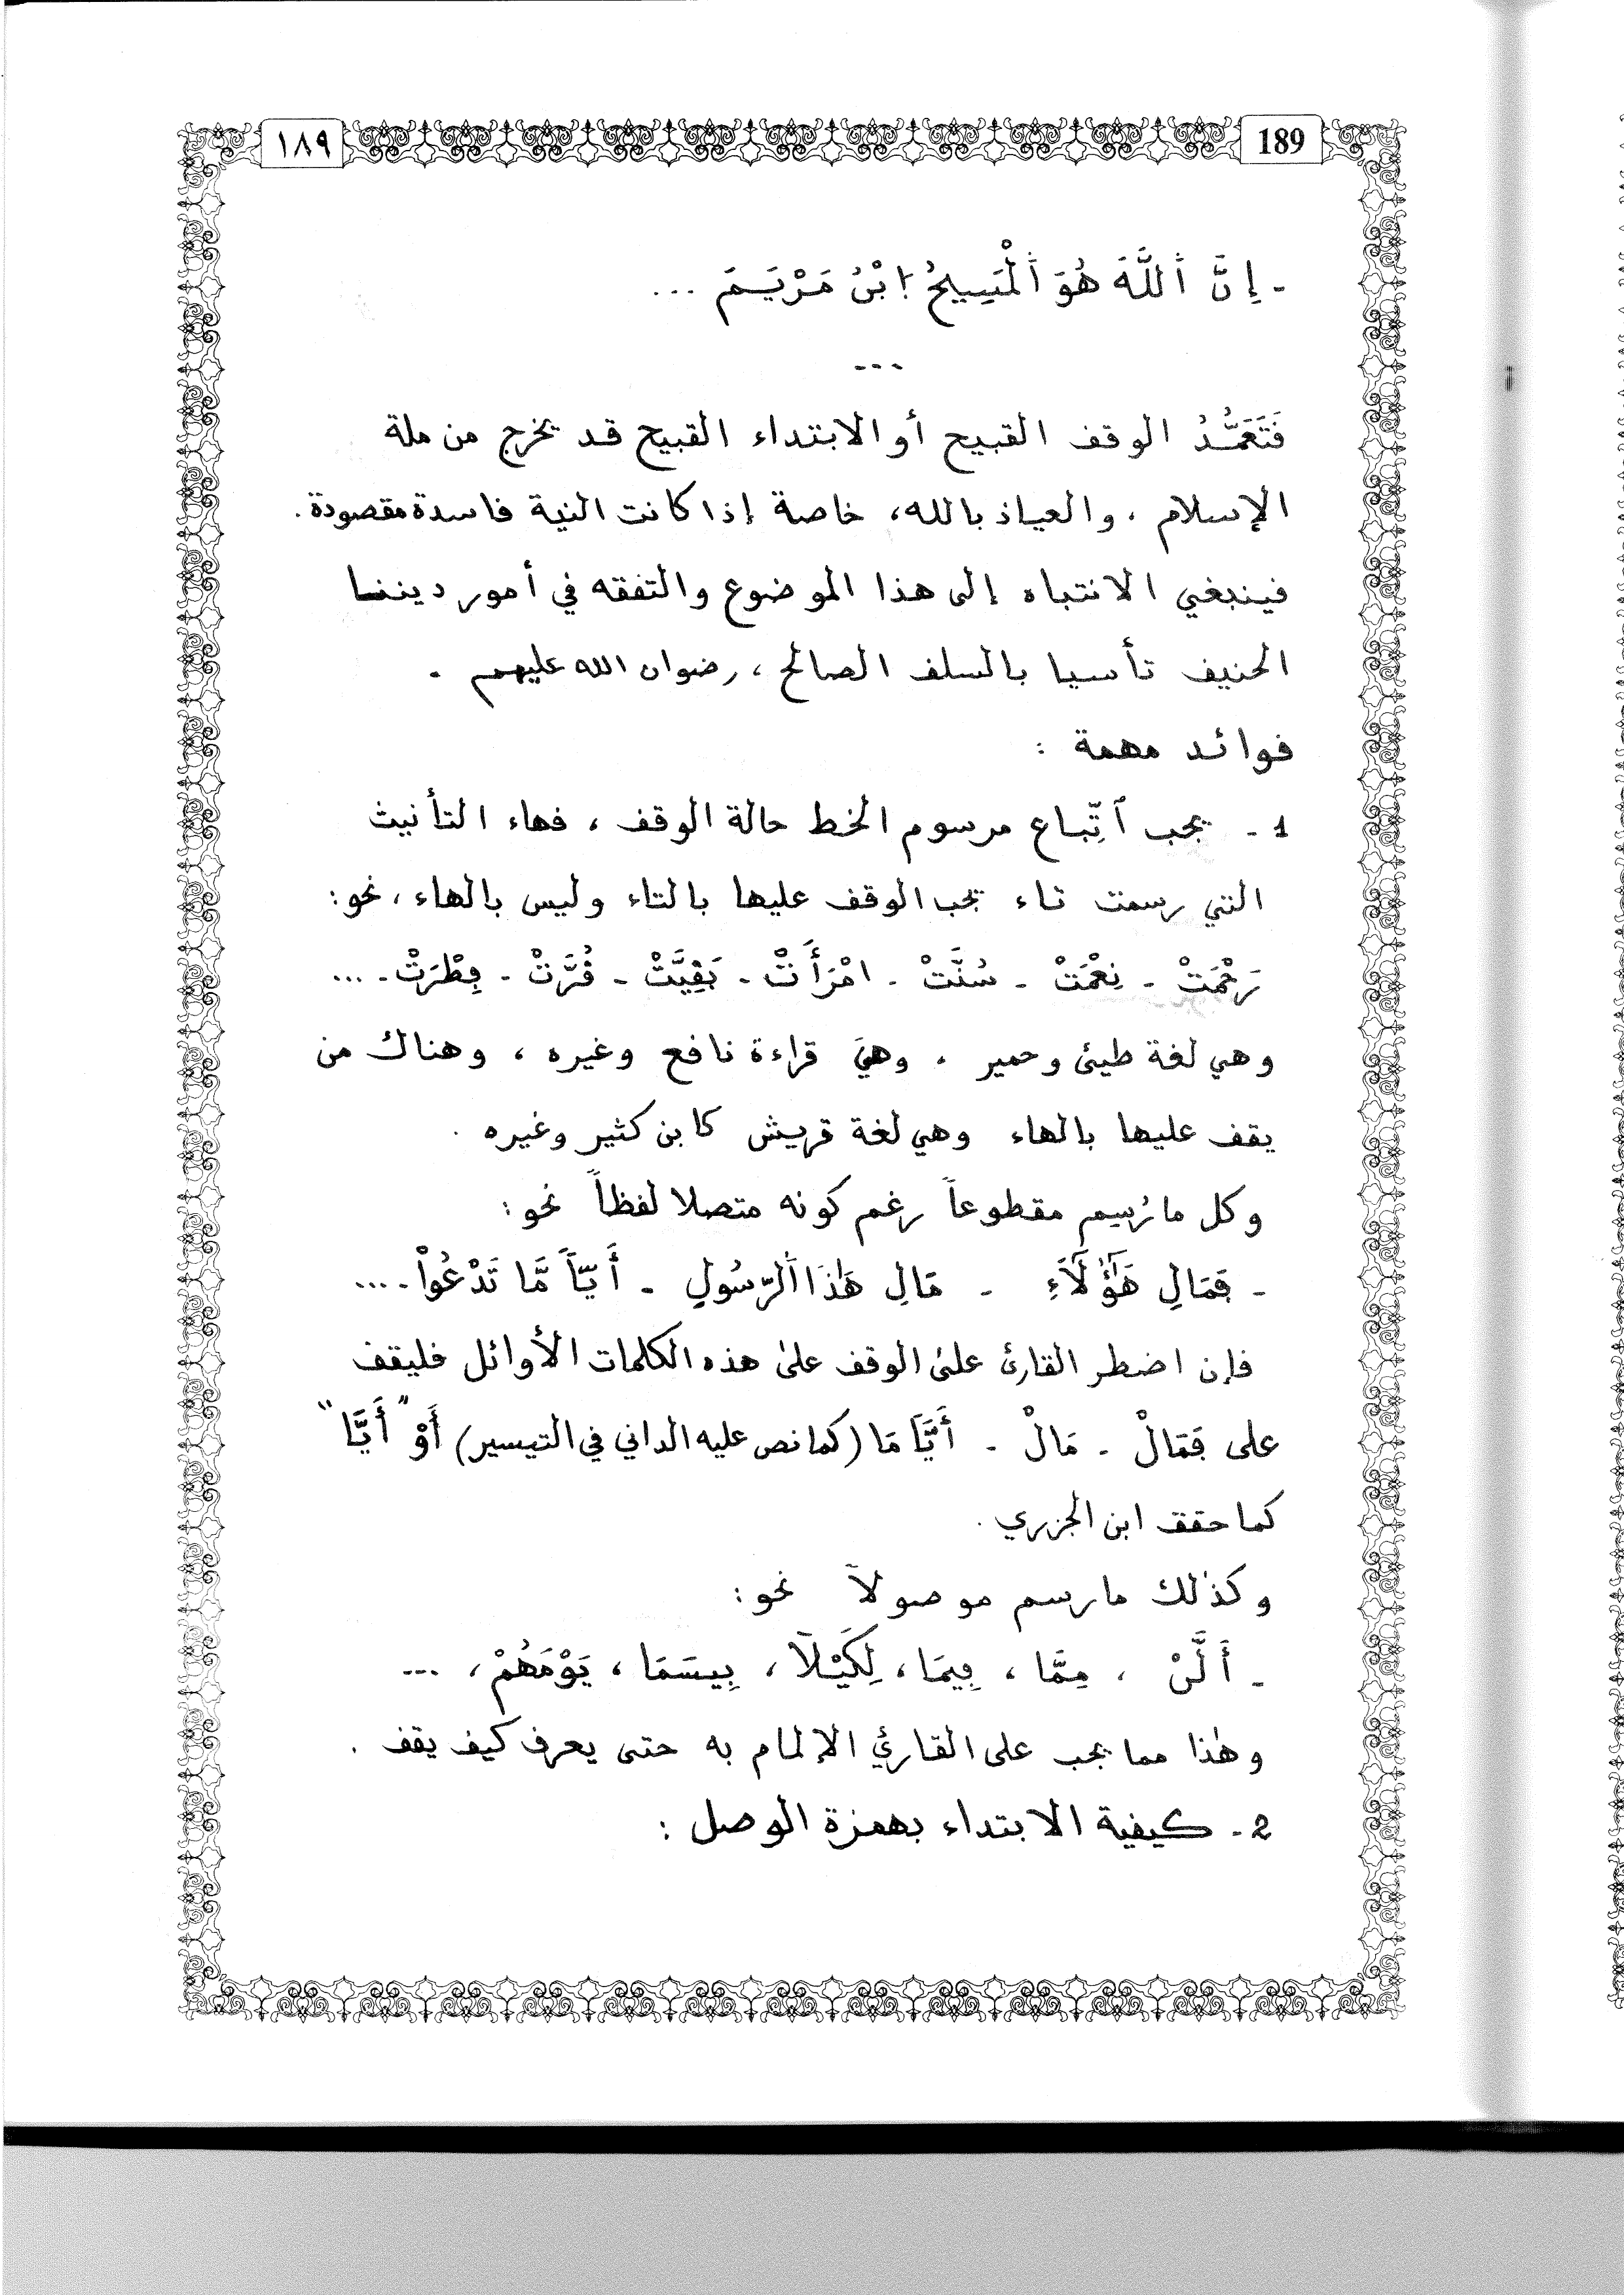 189
١٨٩
- إِنَّ ٱللَّهَ هُوَ ٱلْمَسِيحُ ٱبْنُ مَرْيَمَ ...
---
فَتَعَمُّدُ الوقف القبيح أو الابتداء القبيح قد يخرج من ملة
الإسلام ، والعياذ بالله، خاصة إذا كانت النية فاسدة مقصودة .
فينبغي الانتباه إلى هذا الموضوع والتفقه في أمور ديننا
الحنيف تأسيا بالسلف الصالح ، رضوان الله عليهم .
فوائد مهمة :
1 - يجب ٱتِّباع مرسوم الخط حالة الوقف ، فهاء التأنيث
التي رسمت تاء يجب الوقف عليها بالتاء وليس بالهاء ، نحو :
رَحْمَتْ - نِعْمَتْ - سُنَّتْ - امْرَأَتْ - بَقِيَّتْ - قُرَّتْ - فِطْرَتْ - ...
وهي لغة طيئ وحمير . وهيَ قراءة نافع وغيره ، وهناك من
يقف عليها بالهاء وهي لغة قريش كابن كثير وغيره .
وكل ما رُسِم مقطوعاً رغم كونه متصلا لفظاً نحو :
- فَمَالِ هَٰٓؤُلَآءِ - مَالِ هَٰذَا ٱلرَّسُولِ - أَيّاً مَّا تَدْعُواْ - ...
فإن اضطر القارئ على الوقف على هذه الكلمات الأوائل فليقف
على فَمَالْ - مَالْ - أَيَّاً مَا (كما نص عليه الداني في التيسير) أَوْ "أَيَّا"
كما حقق ابن الجزري .
وكذلك ما رسم موصولاً نحو :
- أَلَّنْ ، مِمَّا ، فِيمَا ، لِكَيْلَا ، بِيسَمَا ، يَوْمَهُمْ ، ---
وهٰذا مما يجب على القارئ الإلمام به حتى يعرف كيف يقف .
2 - كيفية الابتداء بهمزة الوصل :